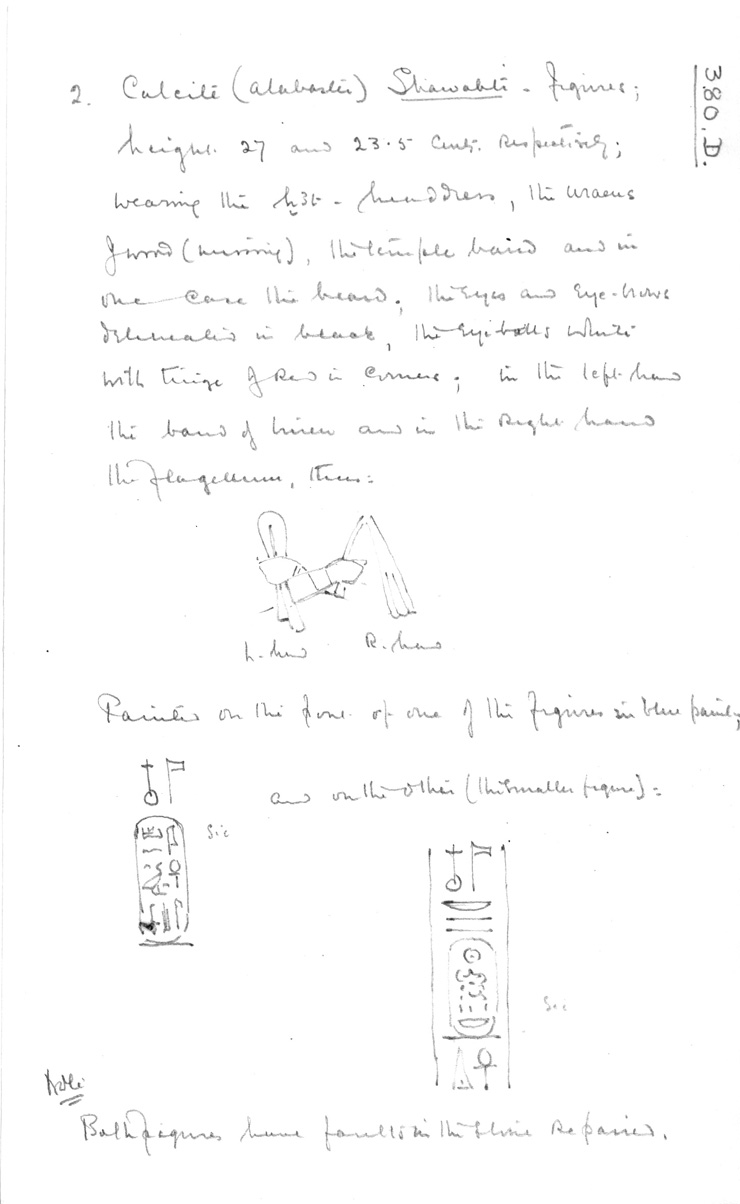 380.D.
2. Calcite (alabaster) Shawabti - figures;
height 27 and 23.5 cents. respectively;
wearing the ḫ3t - headdress, the uraeus
of wood (missing), the temple band and in
one case the beard; the eyes and eye-brows
delineated in black, the eyeballs white
with tinge of red in corners; in the left hand
the band of linen and in the right hand
the flagellum, thus:
L. hand R. hand
Painted on the front of one of the figures in blue paint;
and on the other (the smaller figure) =
Sic
Sic
Note
Both figures have faults in the stone repaired.